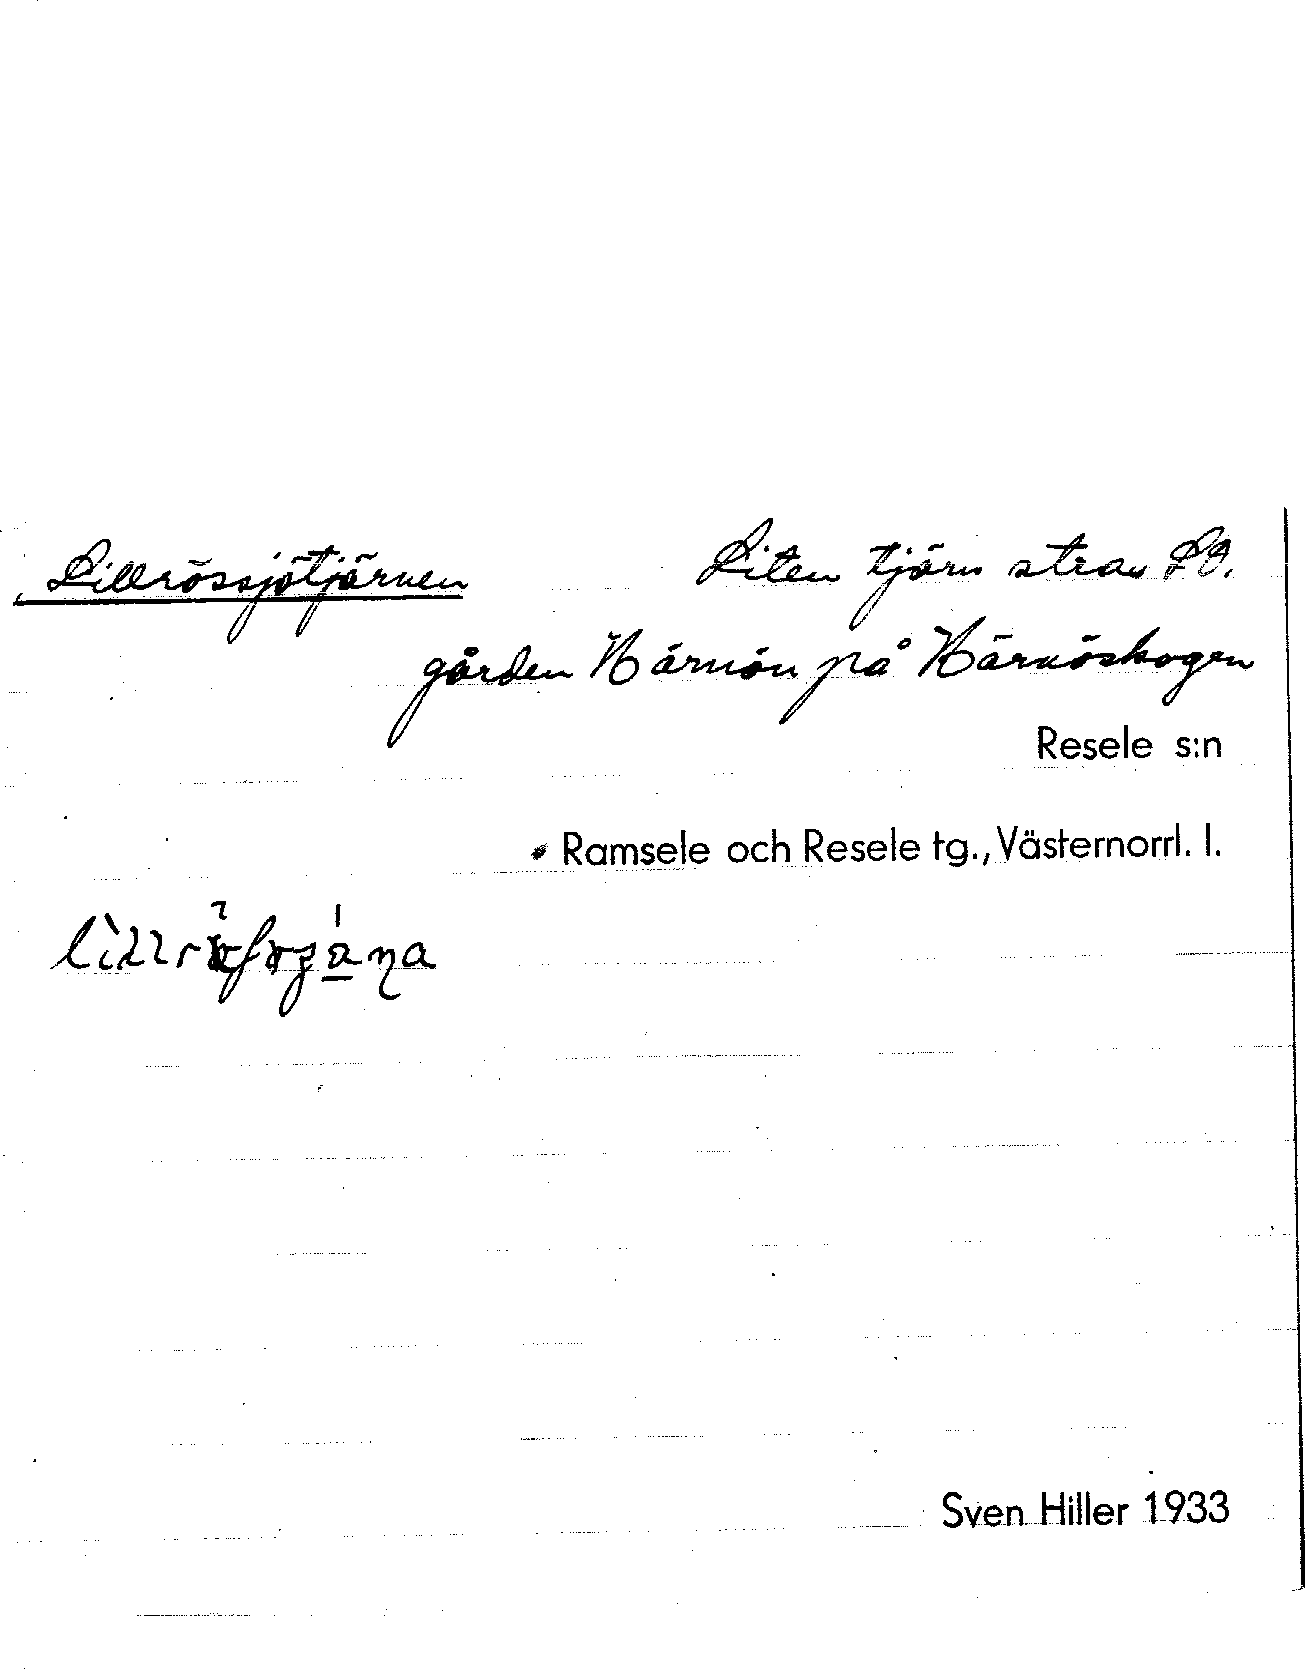 Lillrössjötjärnen Liten tjärn strax SO.
gården Härnön på Härnöskogen
Resele s:n
Ramsele och Resele tg., Västernorrl. l.
Sven Hiller 1933